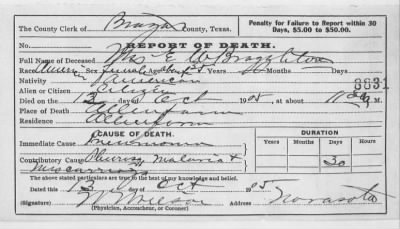 The County Clerk of Brazos County, Texas.
Penalty for Failure to Report within 30 Days, $5.00 to $50.00.
No.
REPORT OF DEATH.
Full Name of Deceased Mrs E W
Race American Sex female Age about Years Months Days
Nativity American
8831
Alien or Citizen Citizen
Died on the 13 day of Oct 1905, at about 11 M.
Place of Death Allenfarm
Residence Allenfarm
CAUSE OF DEATH.
DURATION
Years Months Days Hours
Immediate Cause Pneumonia
Contributory Cause Pleurisy Malaria & 30
Miscarriage
The above stated particulars are true to the best of my knowledge and belief.
Dated this 13 day of Oct 1905
(Signature) Wilson Address Navasota
(Physician, Accoucheur, or Coroner)